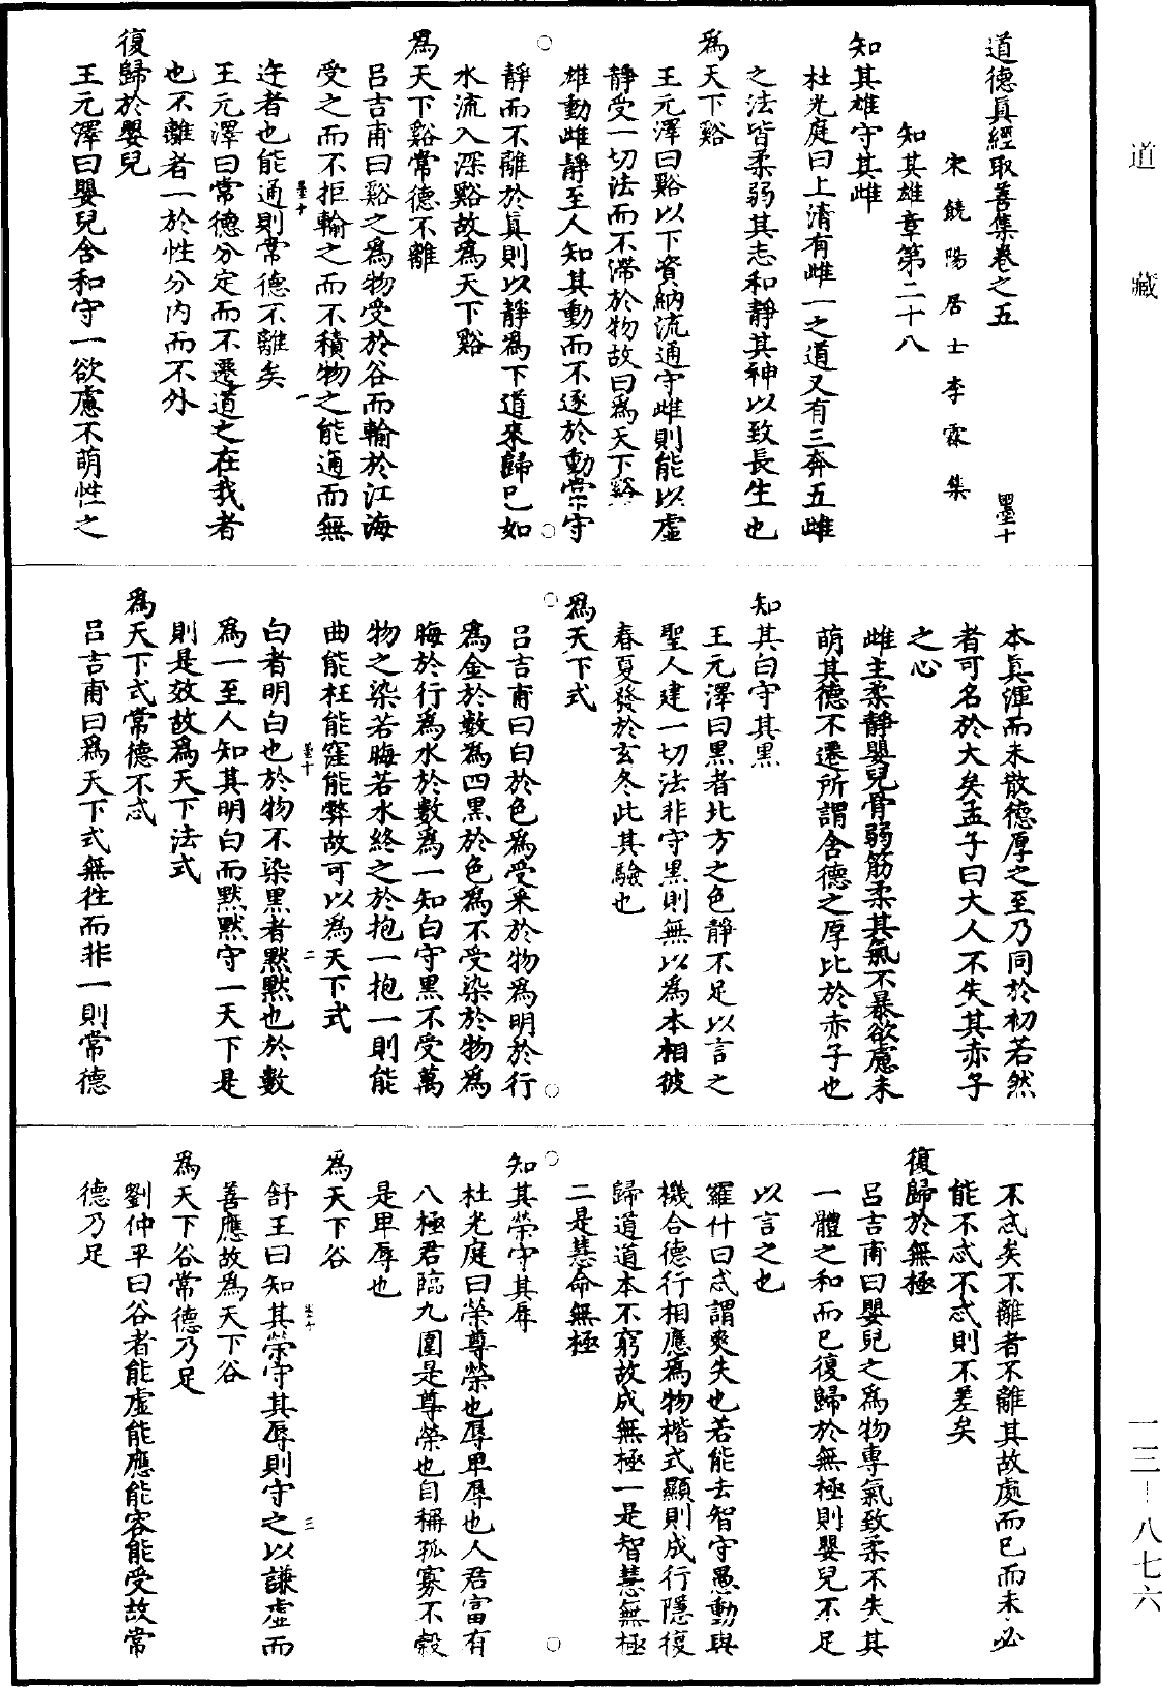 道藏
道德眞經取善集卷之五　墨十
宋饒陽居士李霖集
知其雄章第二十八
知其雄守其雌
杜光庭曰上清有雌一之道又有三奔五雌
之法皆柔弱其志和靜其神以致長生也
爲天下谿
王元澤曰谿以下資納流通守雌則能以虛
靜受一切法而不滯於物故曰爲天下谿
雄動雌靜至人知其動而不逐於動常守
靜而不離於眞則以靜爲下道來歸已如
水流入深谿故爲天下谿
爲天下谿常德不離
呂吉甫曰谿之爲物受於谷而輸於江海
受之而不拒輸之而不積物之能通而無
迕者也能通則常德不離矣
墨十　一
王元澤曰常德分定而不遷道之在我者
也不離者一於性分內而不外
復歸於嬰兒
王元澤曰嬰兒含和守一欲慮不萌性之
本眞渾而未散德厚之至乃同於初若然
者可名於大矣孟子曰大人不失其赤子
之心
雌主柔靜嬰兒骨弱筋柔其氣不暴欲慮未
萌其德不遷所謂含德之厚比於赤子也
知其白守其黑
王元澤曰黑者北方之色靜不足以言之
聖人建一切法非守黑則無以爲本相彼
春夏發於玄冬此其驗也
爲天下式
呂吉甫曰白於色爲受采於物爲明於行
爲金於數為四黑於色爲不受染於物爲
晦於行爲水於數爲一知白守黑不受萬
物之染若晦若水終之於抱一抱一則能
曲能枉能窪能弊故可以爲天下式
墨十　二
白者明白也於物不染黑者默默也於數
爲一至人知其明白而默默守一天下是
則是效故爲天下法式
爲天下式常德不忒
呂吉甫曰爲天下式無往而非一則常德
不忒矣不離者不離其故處而已而未必
能不忒不忒則不差矣
復歸於無極
呂吉甫曰嬰兒之爲物專氣致柔不失其
一體之和而已復歸於無極則嬰兒不足
以言之也
羅什曰忒謂爽失也若能去智守愚動與
機合德行相應爲物楷式顯則成行隱復
歸道道本不窮故成無極一是智慧無極
二是慧命無極
知其榮守其辱
杜光庭曰榮尊榮也辱卑辱也人君富有
八極君臨九圍是尊榮也自稱孤寡不穀
是卑辱也
爲天下谷
墨十　三
舒王曰知其榮守其辱則守之以謙虛而
善應故為天下谷
爲天下谷常德乃足
劉仲平曰谷者能虛能應能容能受故常
德乃足
一三－八七六